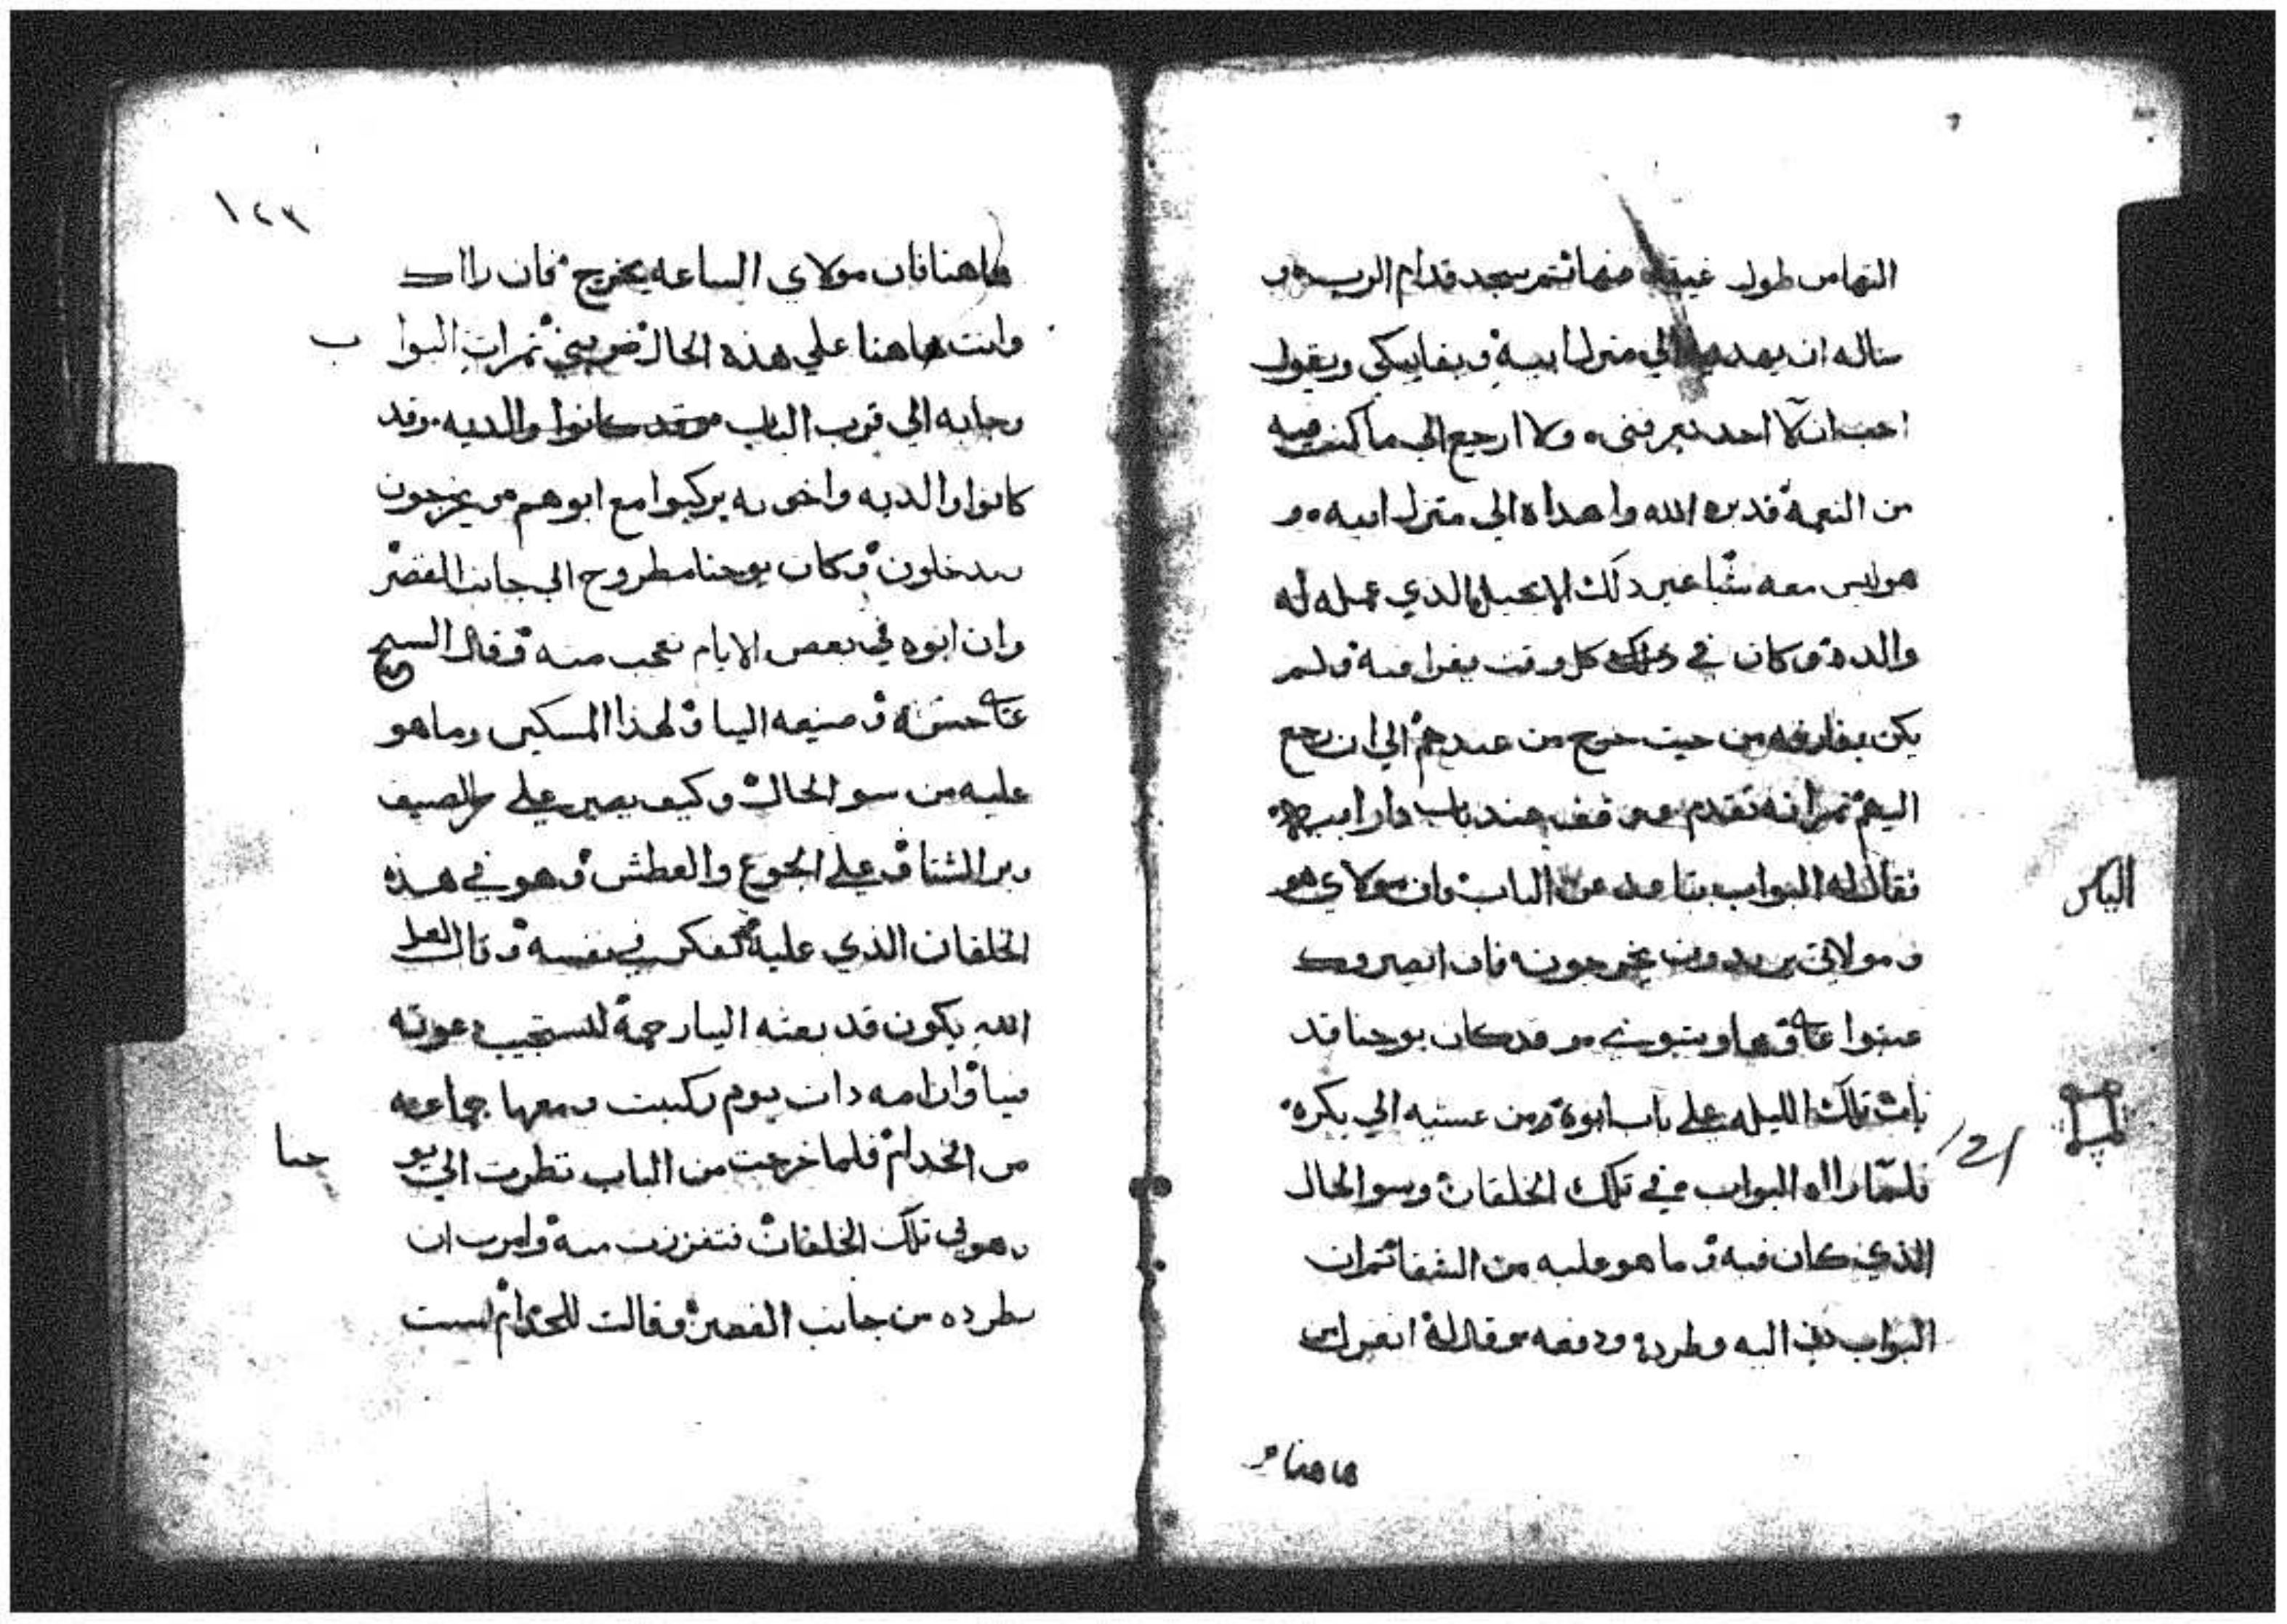 من طول غيبته منها ثم سجد قدام الرب و
ساله ان يهديه الي منزل ابيه وبقا يبكي ويقول
احب ان لا احد يعرفني ولا ارجع الي ما كنت فيه
من النعمة فدبره الله واهداه الي منزل ابيه و
هو ليس معه شيا غير دلك الانجيل الدي عمله له
والده وكان في دلك كل وقت يقرا فيه ولم
يكن يفارقه من حيت خرج من عندهم الي ان رجع
اليهم تم انه تقدم ووقف عند باب دار ابيه
فقال له البواب يتاعد عن الباب فان مولاي هو
و مولاتي يريدون يخرجون فان ابصروك
قد كان يوحنا قد
بات تلك الليله علي باب ابوه من عشيه الي بكره
فلما رااه البواب في تلك الخلقان وسو الحال
الذي كان فيه و ما هو عليه من الشقا تم ان
البواب اليه وطرده ودفعه وقال له
هاهنا
الباكر
121
١٢٣
هاهنا فان مولاي الساعه يخرج فان رااك
وانت هاهنا علي هذه الحال تم ان البواب
وجابه الي قرب الباب وقد
كانوا والديه واخوته يركبوا مع ابوهم يخرجون
يدخلون وكان يوحنا مطروح الي جانب القصر
وان ابوه في بعض الايام تعجب منه وقال
صنيعه الينا لهذا المسكين وما هو
عليه من سو الحال وكيف يصبر علي حر الصيف
وبرد الشتا وعلي الجوع والعطش وهو في هذه
الخلقان الذي عليه تفكر في نفسه وقال لعل
الله يكون قد بعته الينا رحمة لتستجيب دعوته
فينا وان امه دات يوم ركبت ومعها جماعه
من الخدام فلما خرجت من الباب نظرت الي يوحنا
وهو في تلك الخلقان فتقززت منه وامرت ان
يطرده من جانب القصر وقالت للخدام لست